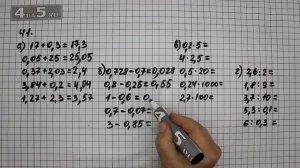 4 5
41.
а) 17 + 0,3 = 17,3
0,05 + 25 = 25,05
0,37 + 2,03 = 2,4
3,84 + 0,2 = 4,04
1,27 + 2,3 = 3,57
б) 0,728 - 0,7 = 0,028
0,8 - 0,25 = 0,55
1 - 0,6 = 0,
0,7 - 0,07 =
3 - 0,85 =
в) 0,2 · 5 =
4 · 2,5 =
0,5 · 20 =
0,24 · 1000 =
2,7 · 100 =
г) 2,6 : 2 =
1,8 : 9 =
3,7 : 10 =
5,3 : 0,1 =
6 : 0,3 =